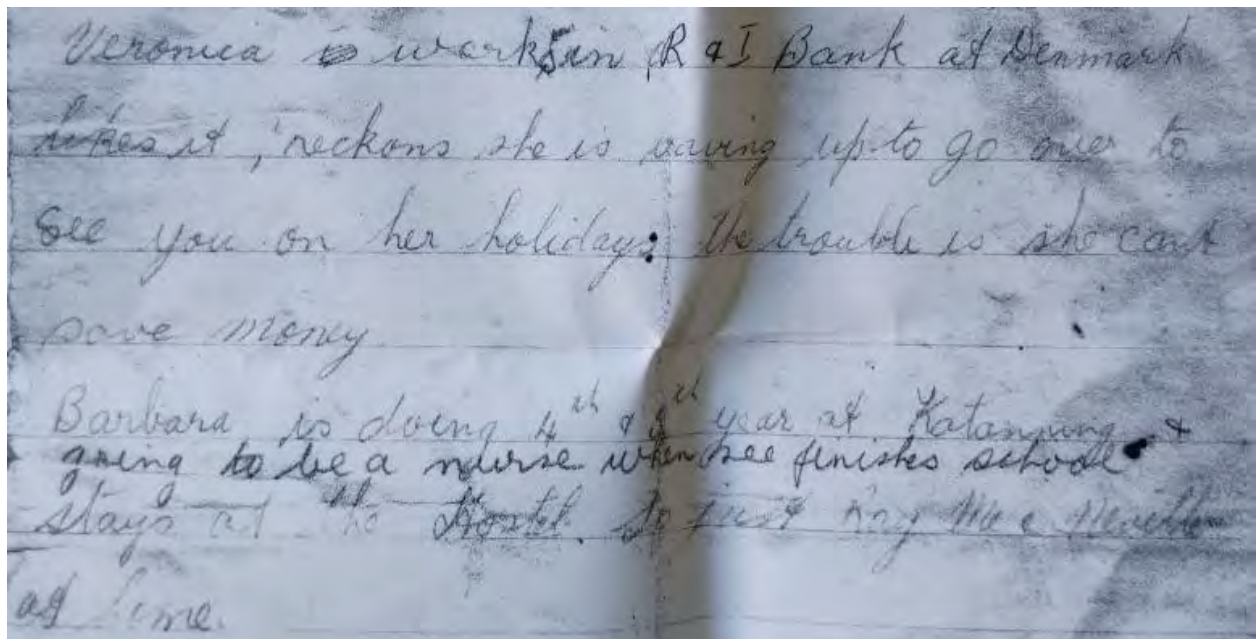 Veronica works in R & I Bank at Denmark
likes it, reckons she is saving up to go over to
see you on her holidays. the trouble is she cant
save money
Barbara is doing 4th & 5th year at Katanning &
going to be a nurse when shee finishes school
stays at the Hostel. So just Ray Me & Neville
at home.